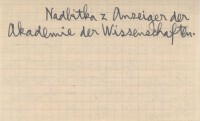 Nadbitka z Anzeiger der
Akademie der Wissenschaften.